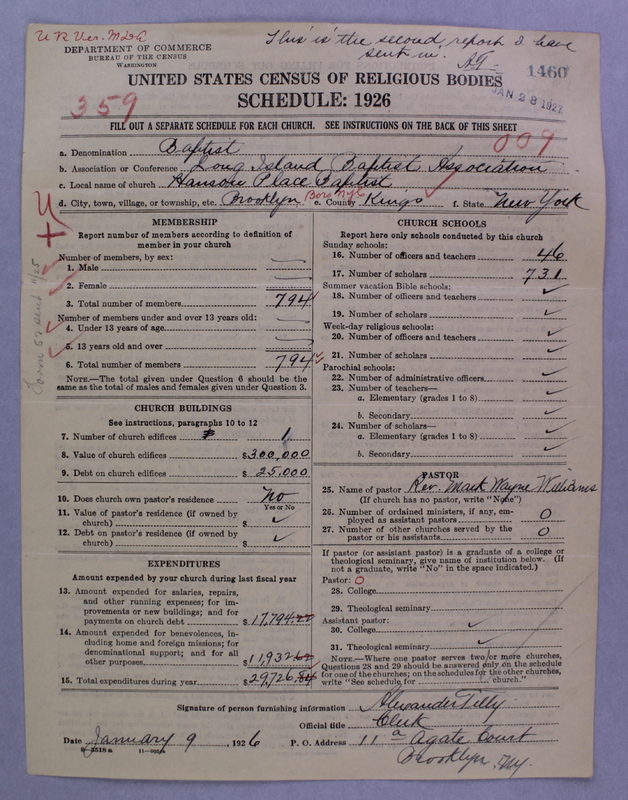 U.R. Ver. MDR
This is the second report I have
sent in. AG-
DEPARTMENT OF COMMERCE
BUREAU OF THE CENSUS
WASHINGTON
1460
UNITED STATES CENSUS OF RELIGIOUS BODIES
JAN 28 1927
SCHEDULE: 1926
359
FILL OUT A SEPARATE SCHEDULE FOR EACH CHURCH. SEE INSTRUCTIONS ON THE BACK OF THIS SHEET
009
a. Denomination Baptist
b. Association or Conference Long Island Baptist Association
c. Local name of church Hanson Place Baptist
d. City, town, village, or township, etc. Brooklyn Boro NYC e. County Kings f. State New York
MEMBERSHIP
Report number of members according to definition of
member in your church
Number of members, by sex:
1. Male
2. Female
3. Total number of members 794
Number of members under and over 13 years old:
4. Under 13 years of age
5. 13 years old and over
6. Total number of members 794
NOTE.—The total given under Question 6 should be the
same as the total of males and females given under Question 3.
CHURCH BUILDINGS
See instructions, paragraphs 10 to 12
7. Number of church edifices 1
8. Value of church edifices $300,000
9. Debt on church edifices $25,000
10. Does church own pastor's residence No
Yes or No
11. Value of pastor's residence (if owned by
church) $ ✓
12. Debt on pastor's residence (if owned by
church) $ ✓
EXPENDITURES
Amount expended by your church during last fiscal year
13. Amount expended for salaries, repairs,
and other running expenses; for im-
provements or new buildings; and for
payments on church debt $17,794.22
14. Amount expended for benevolences, in-
cluding home and foreign missions; for
denominational support; and for all
other purposes $11,932.62
15. Total expenditures during year $29,726.84
CHURCH SCHOOLS
Report here only schools conducted by this church
Sunday schools:
16. Number of officers and teachers 46
17. Number of scholars 731
Summer vacation Bible schools:
18. Number of officers and teachers ✓
19. Number of scholars ✓
Week-day religious schools:
20. Number of officers and teachers ✓
21. Number of scholars ✓
Parochial schools:
22. Number of administrative officers ✓
23. Number of teachers—
a. Elementary (grades 1 to 8) ✓
b. Secondary ✓
24. Number of scholars—
a. Elementary (grades 1 to 8) ✓
b. Secondary ✓
PASTOR
25. Name of pastor Rev. Mark Wayne Williams
(If church has no pastor, write "None")
26. Number of ordained ministers, if any, em-
ployed as assistant pastors 0
27. Number of other churches served by the
pastor or his assistants 0
If pastor (or assistant pastor) is a graduate of a college or
theological seminary, give name of institution below. (If
not a graduate, write "No" in the space indicated.)
Pastor: O
28. College
29. Theological seminary
Assistant pastor:
30. College ✓
31. Theological seminary ✓
NOTE.—Where one pastor serves two or more churches,
Questions 28 and 29 should be answered only on the schedule
for one of the churches; on the schedules for the other churches,
write "See schedule for church."
Signature of person furnishing information Alexander Tilly
Official title Clerk
Date January 9, 1926 P. O. Address 11a Agate Court
Brooklyn, NY.
Form 52 send 11/25